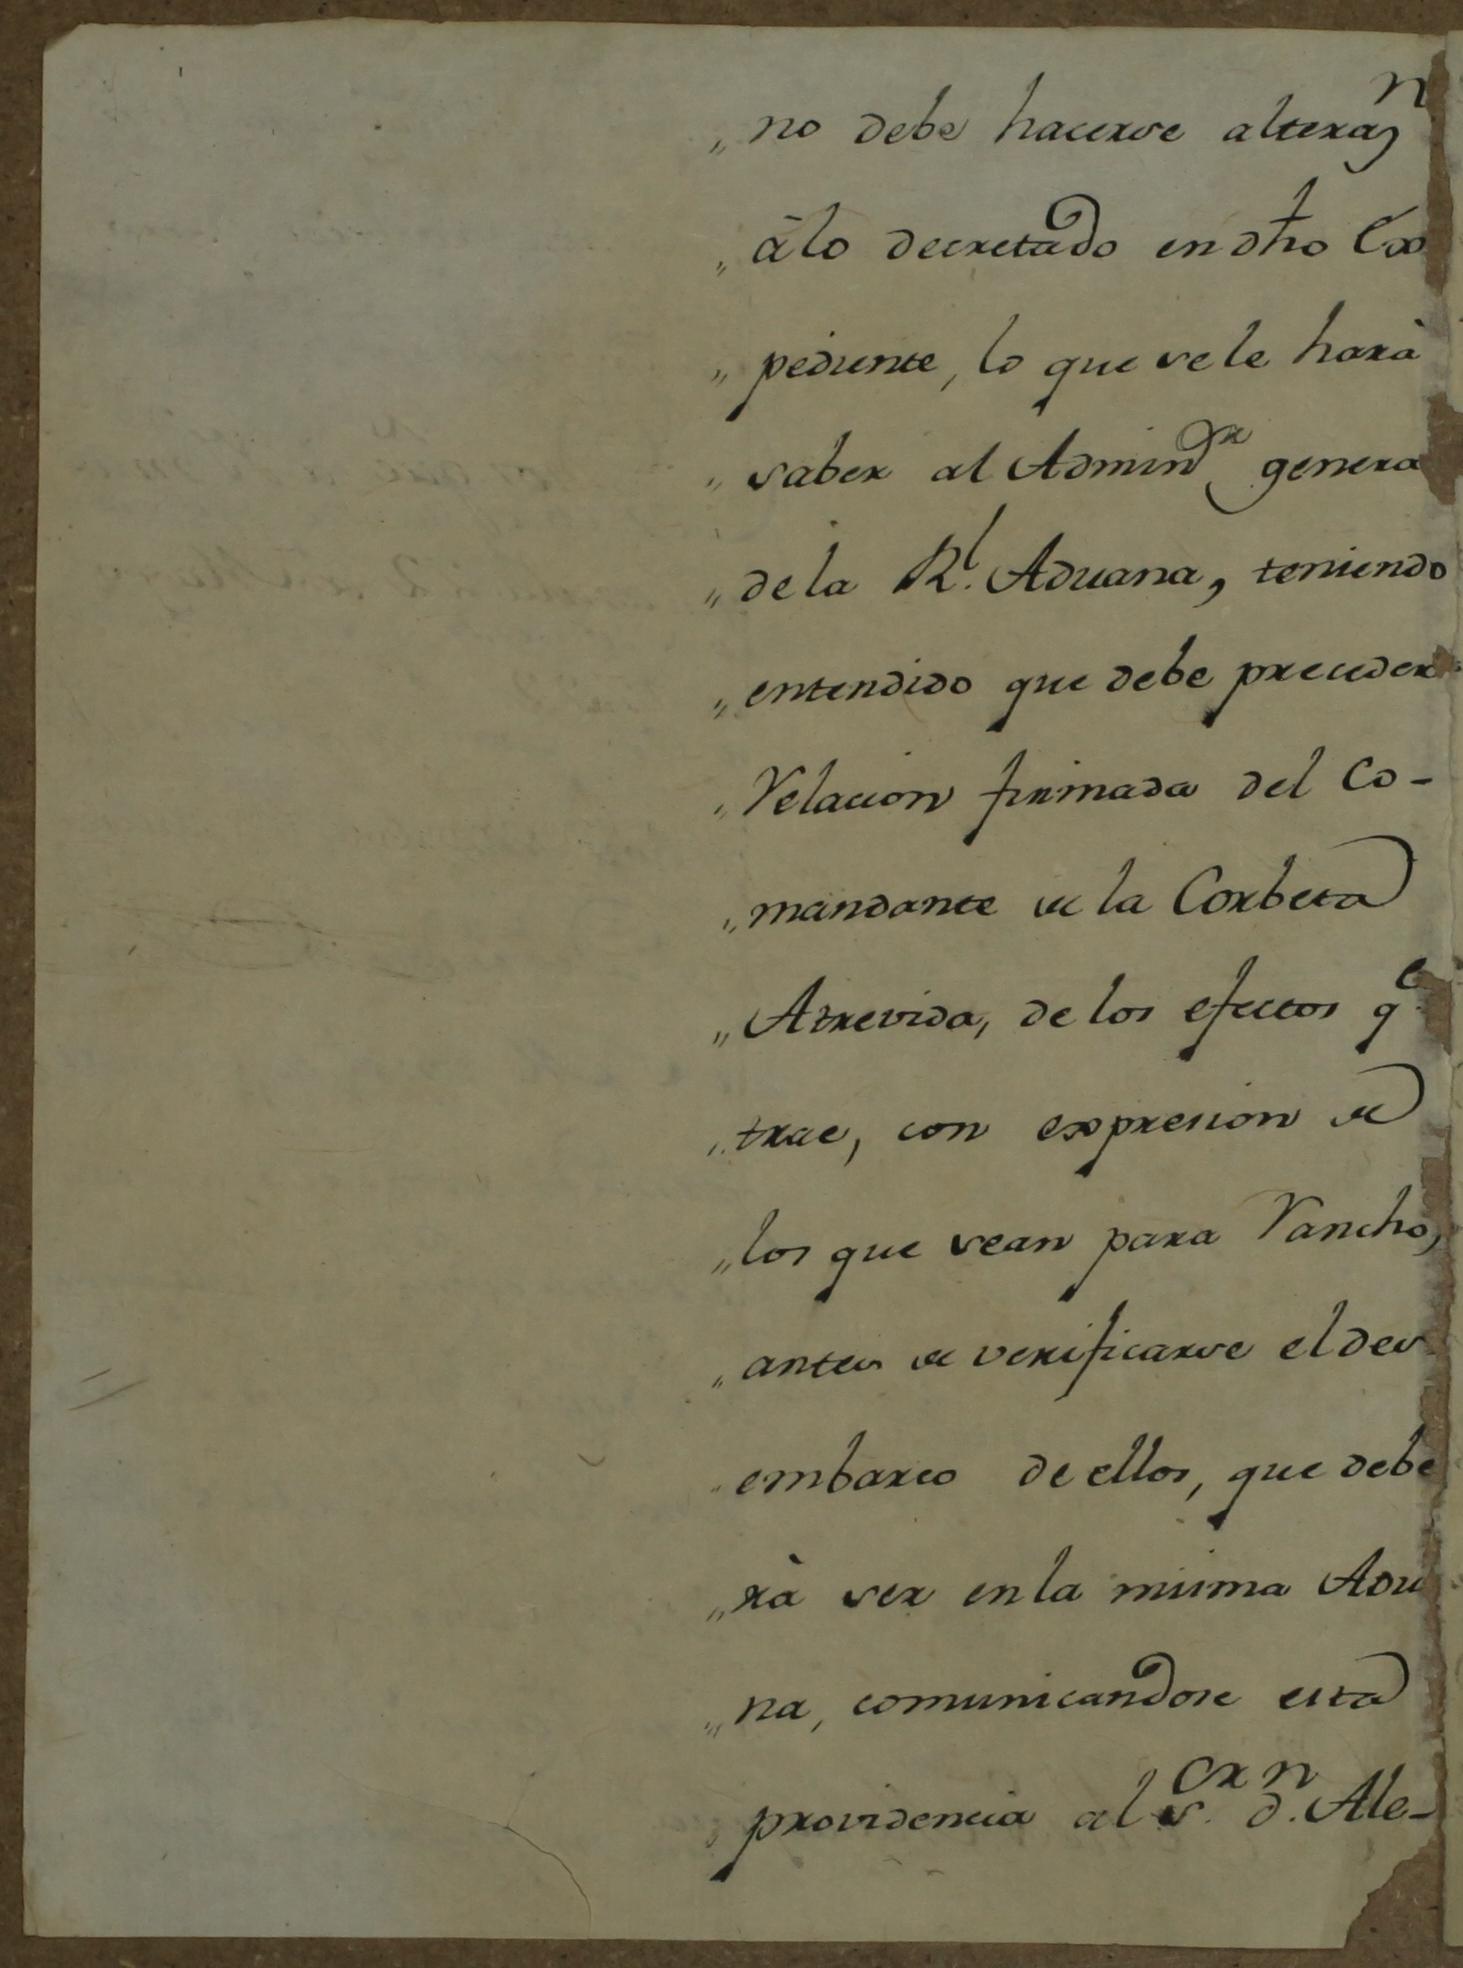 „ no debe hacerse alteraⁿ
„ â lo decretado en dho Ex
„ pediente, lo que se le harà
„ saber al Adminᵒʳ genera
„ de la Rˡ. Aduana, teniendo
„ entendido que debe preceder
„ relacion firmada del Co-
„ mandante de la Corbeta
„ Atrevida, de los efectos qᵉ
„ trae, con expresion de
„ los que sean para rancho,
„ antes de verificarse el des
„ embarco de ellos, que debe
„ rà ser en la misma Adu
„ na, comunicandose esta
„ providencia al Sᵒʳ. dⁿ. Ale-